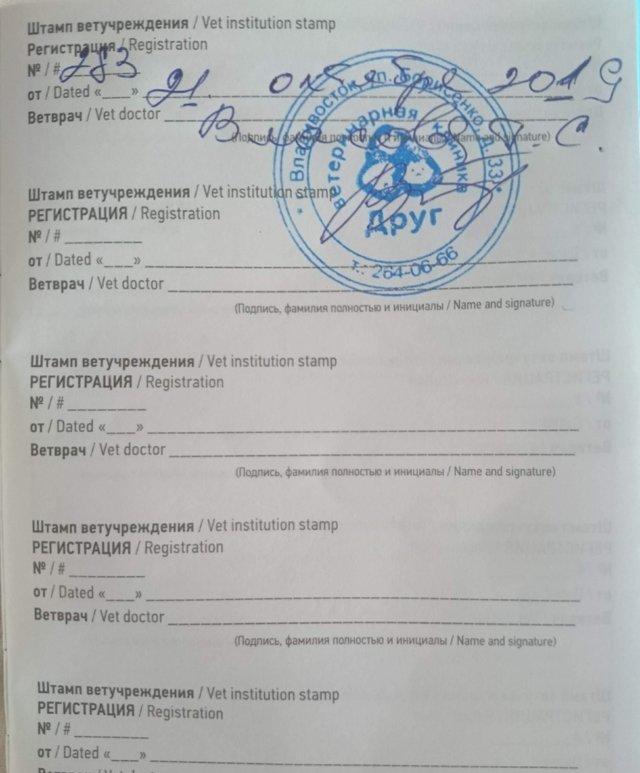 Штамп ветучреждения / Vet institution stamp
Регистрация / Registration
№ / # 283
от / Dated «___» 21. октября 2019
Ветврач / Vet doctor
(Подпись, фамилия полностью и инициалы / Name and signature)
* Владивосток, ул. Борисенко д. 33 *
ветеринарная клиника
Друг
т.: 264-06-66
Штамп ветучреждения / Vet institution stamp
РЕГИСТРАЦИЯ / Registration
№ / # ________
от / Dated «___» ________
Ветврач / Vet doctor ________
(Подпись, фамилия полностью и инициалы / Name and signature)
Штамп ветучреждения / Vet institution stamp
РЕГИСТРАЦИЯ / Registration
№ / # ________
от / Dated «___» ________
Ветврач / Vet doctor ________
(Подпись, фамилия полностью и инициалы / Name and signature)
Штамп ветучреждения / Vet institution stamp
РЕГИСТРАЦИЯ / Registration
№ / # ________
от / Dated «___» ________
Ветврач / Vet doctor ________
(Подпись, фамилия полностью и инициалы / Name and signature)
Штамп ветучреждения / Vet institution stamp
РЕГИСТРАЦИЯ / Registration
№ / # ________
от / Dated «___» ________